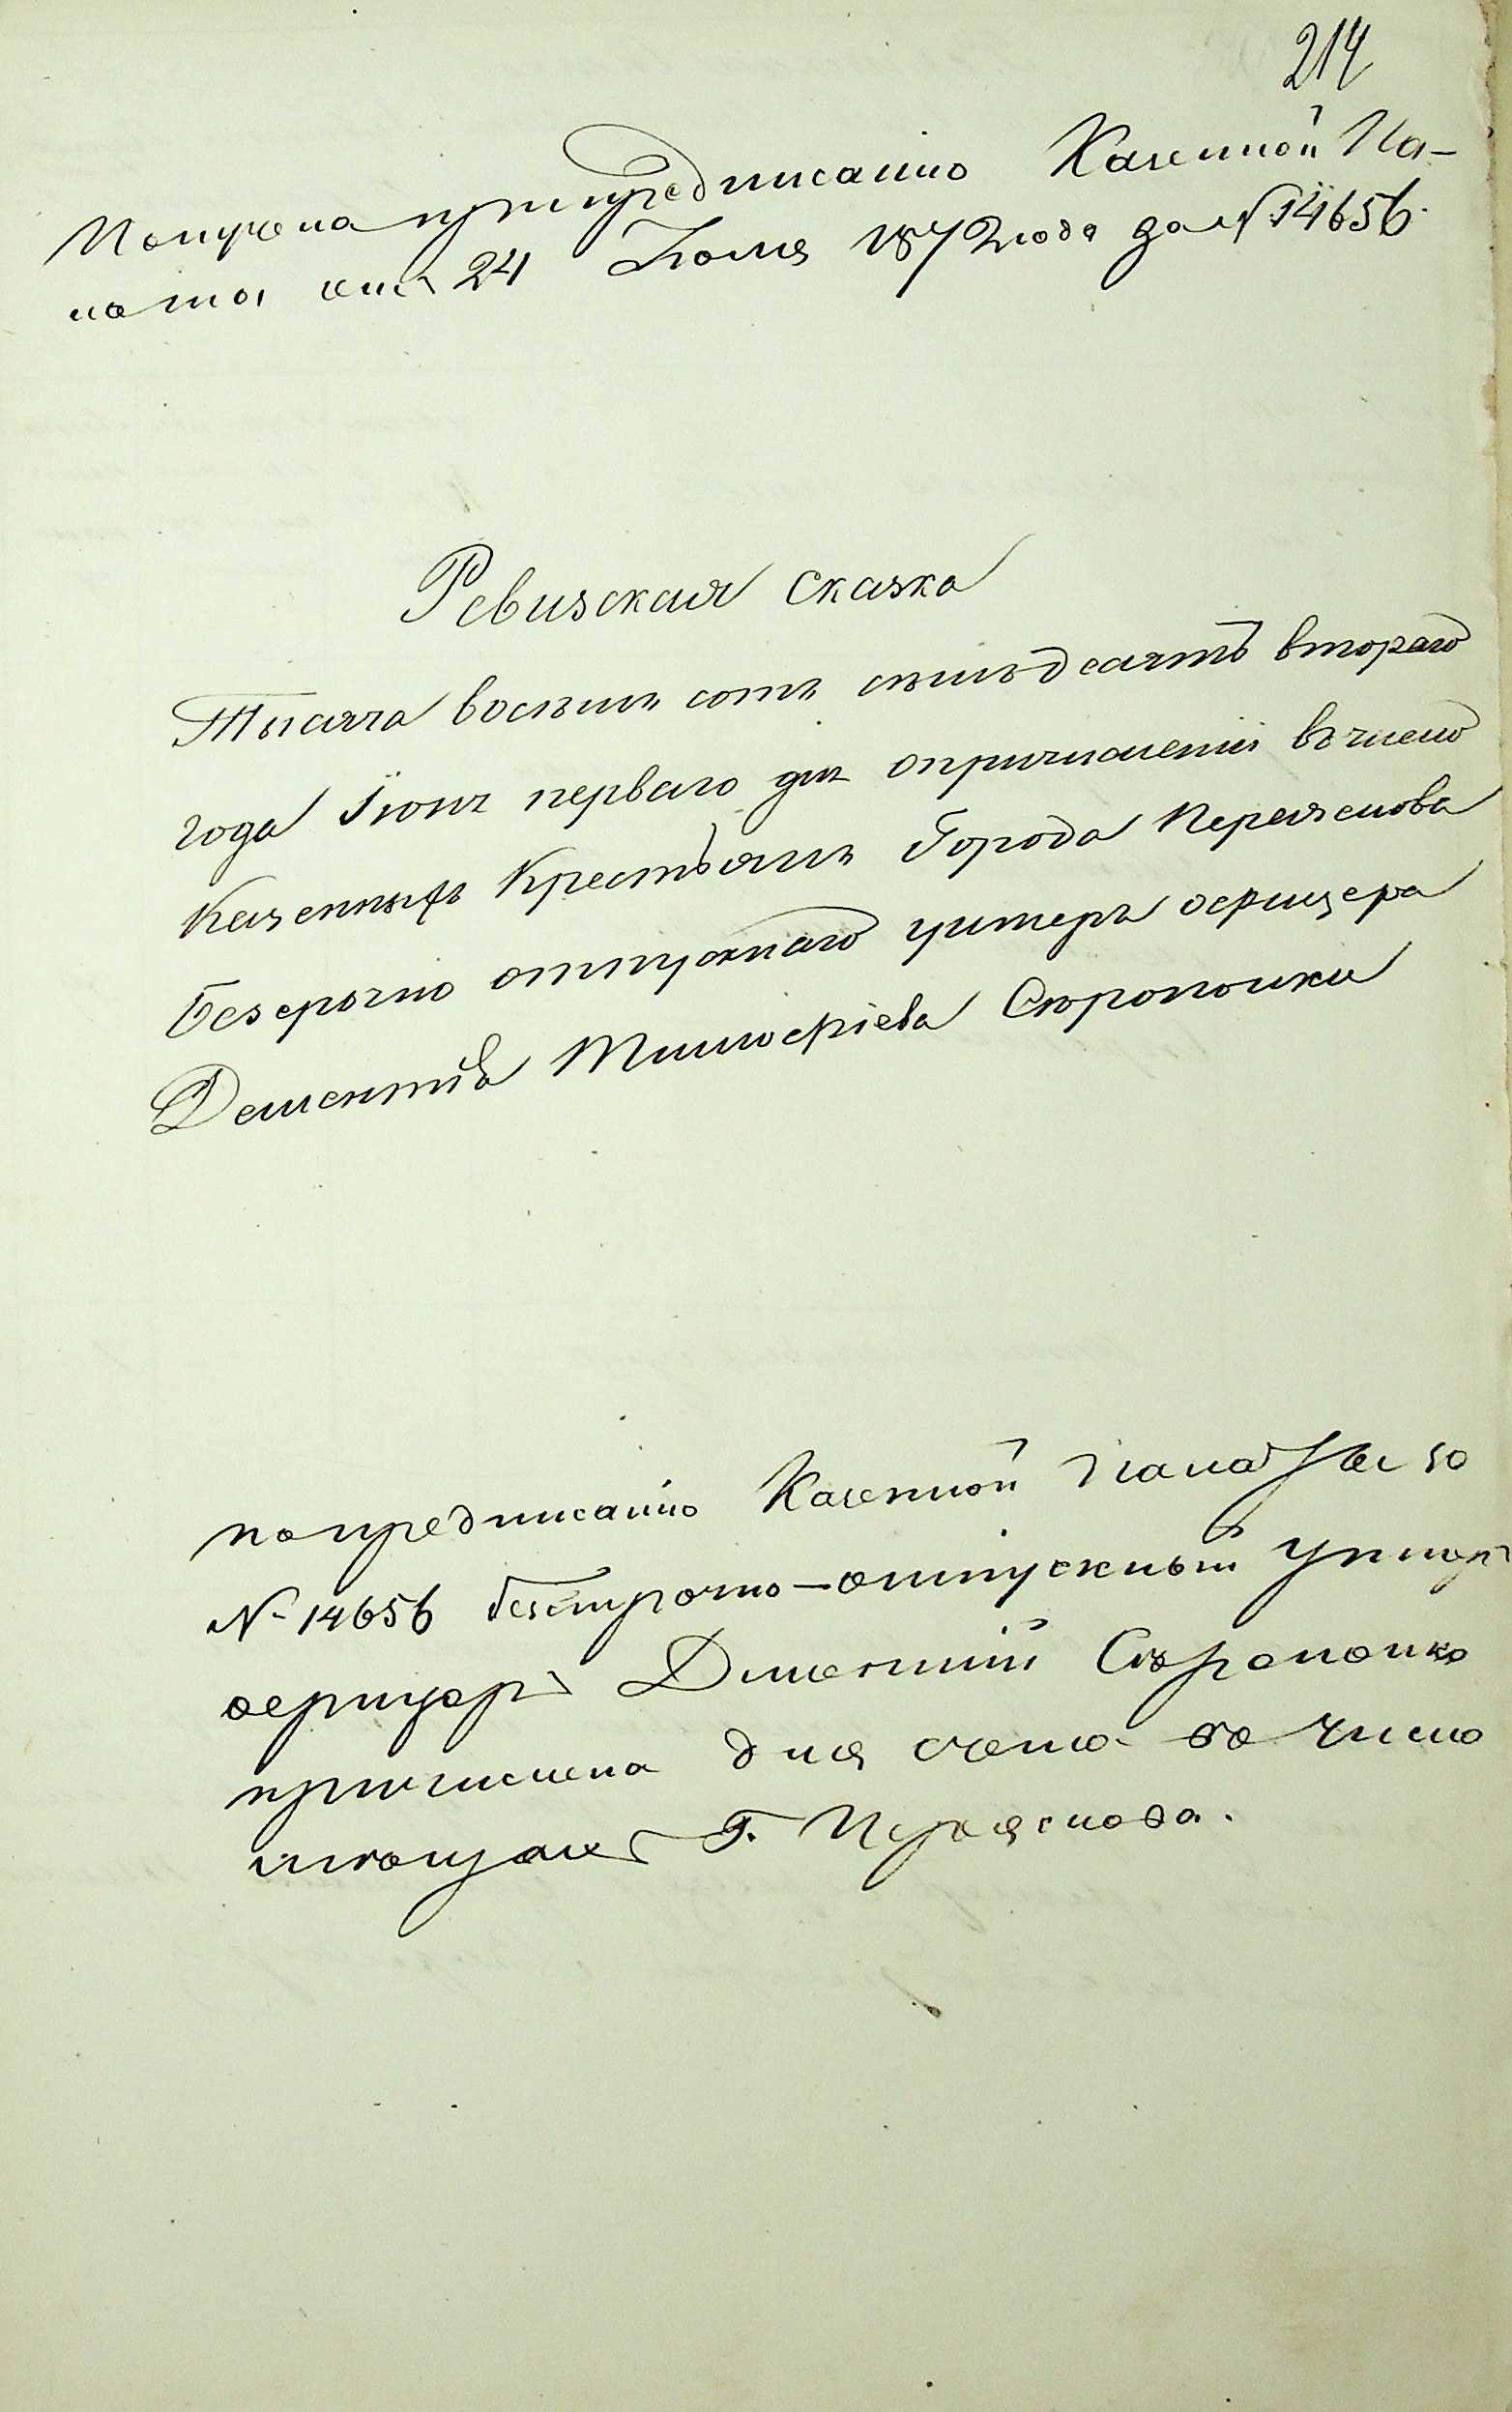 214
Получена при предписанiю Казенной Па-
латы отъ 24 Іюля 1872 года за № 14656.
Ревизская сказка
Тысяча восемъ сотъ семьдесятъ втораго
года Іюня перваго дня о причисленіи въ число
Казенныхъ Крестьянъ Города Переяслова
Безсрочно отпускнаго унтеръ офицера
Дементія Тимофіева Сюропонки
по предписанію Казенной Палаты за
№ 14656 безсрочно-отпускный унтеръ
офицеръ Дментій Сюропонко
причисленъ для счета въ число
мѣщанъ Г. Переяслова.